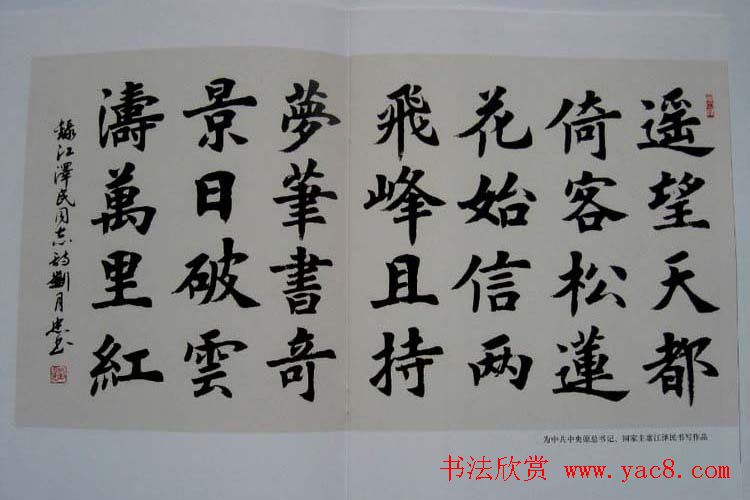 遥望天都
倚客松蓮
花始信两
飛峰且持
夢筆書奇
景日破雲
濤萬里紅
錄江澤民同志詩劉月忠书
为中共中央原总书记、国家主席江泽民书写作品
书法欣赏 www.yac8.com